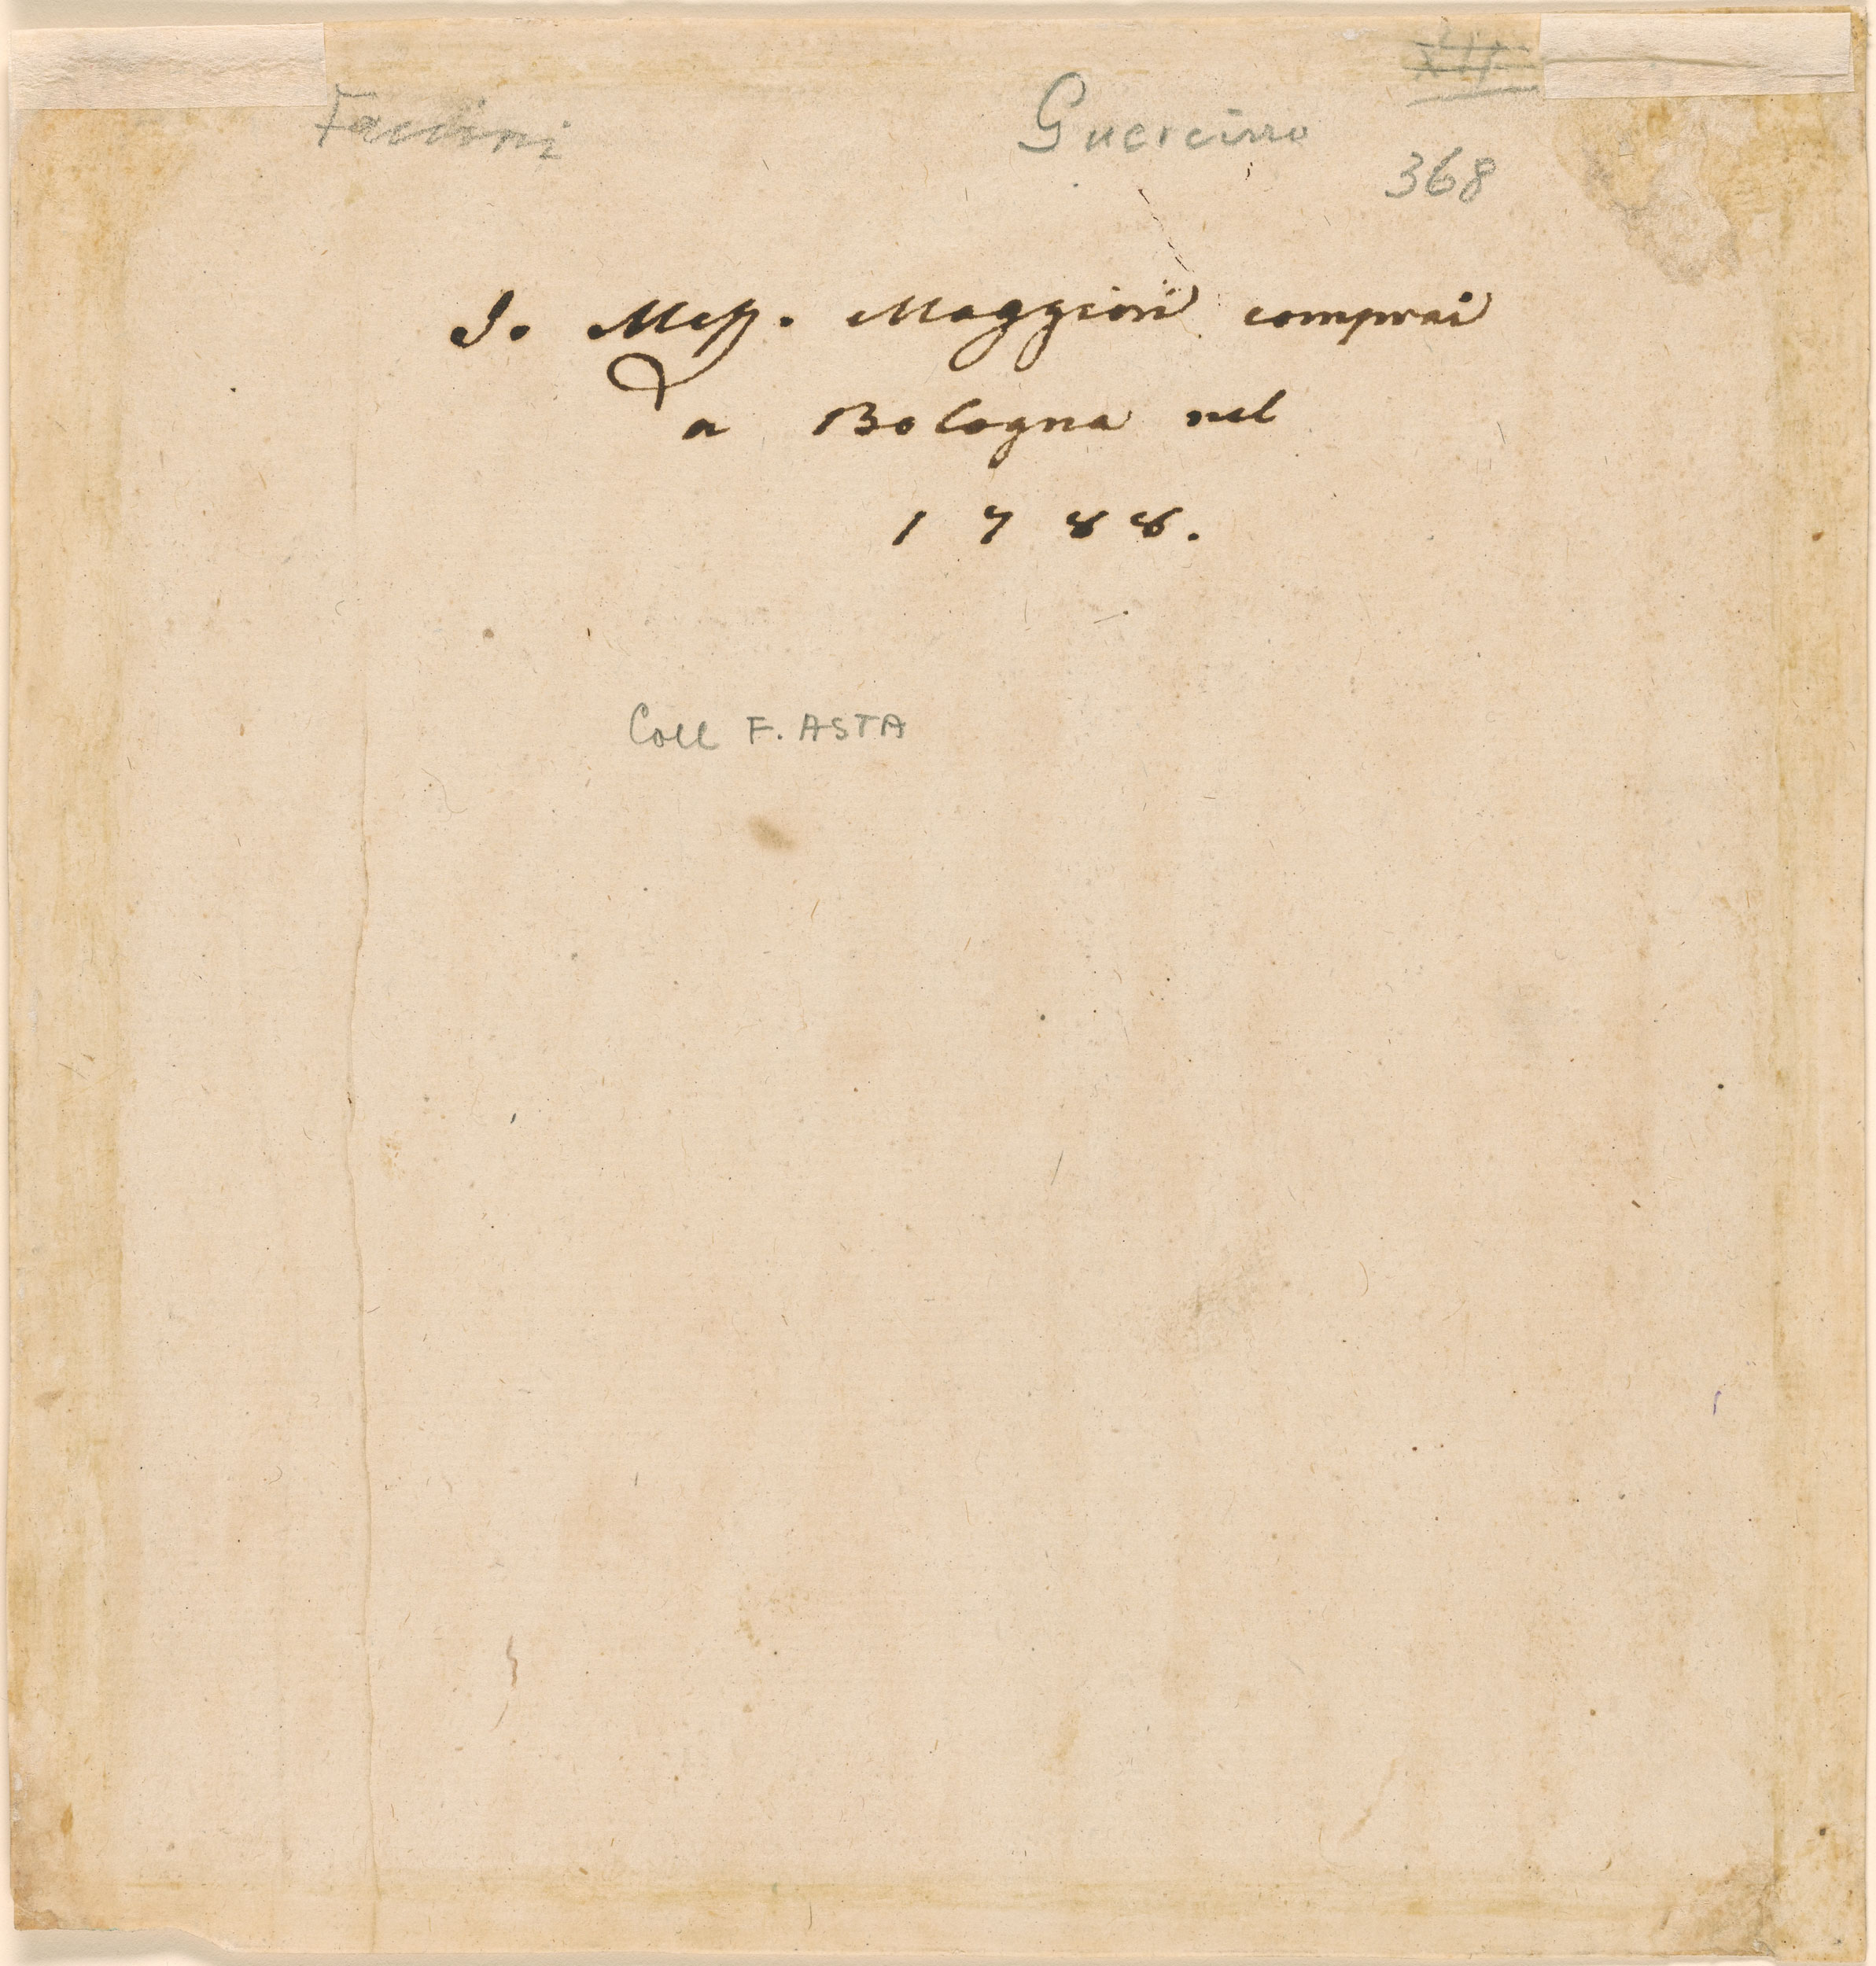 Faccini
Guercino
368
Io Aless. Maggiori comprai
a Bologna nel
1788.
Coll F. ASTA